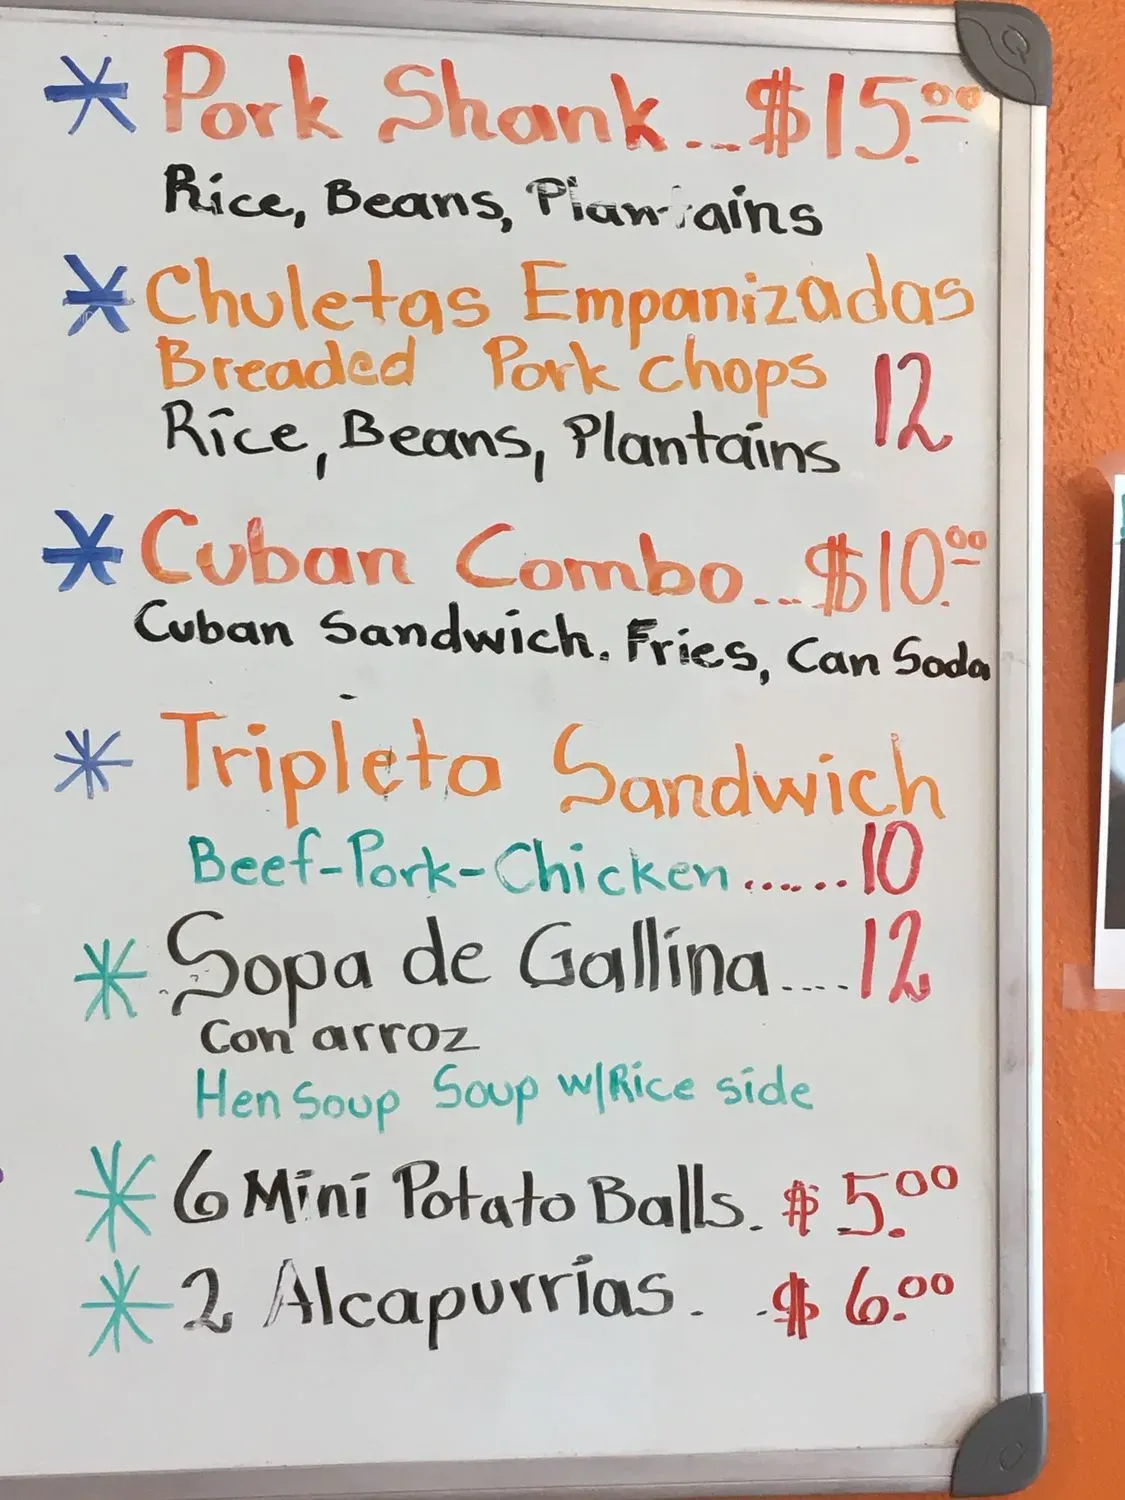 * Pork Shank...$15.00
Rice, Beans, Plantains
* Chuletas Empanizadas
Breaded Pork chops 12
Rice, Beans, Plantains
* Cuban Combo...$10.00
Cuban Sandwich. Fries, Can Soda
* Tripleta Sandwich
Beef-Pork-Chicken......10
* Sopa de Gallina....12
Con arroz
Hen Soup Soup w/Rice side
* 6 Mini Potato Balls. $5.00
* 2 Alcapurrias. .$6.00